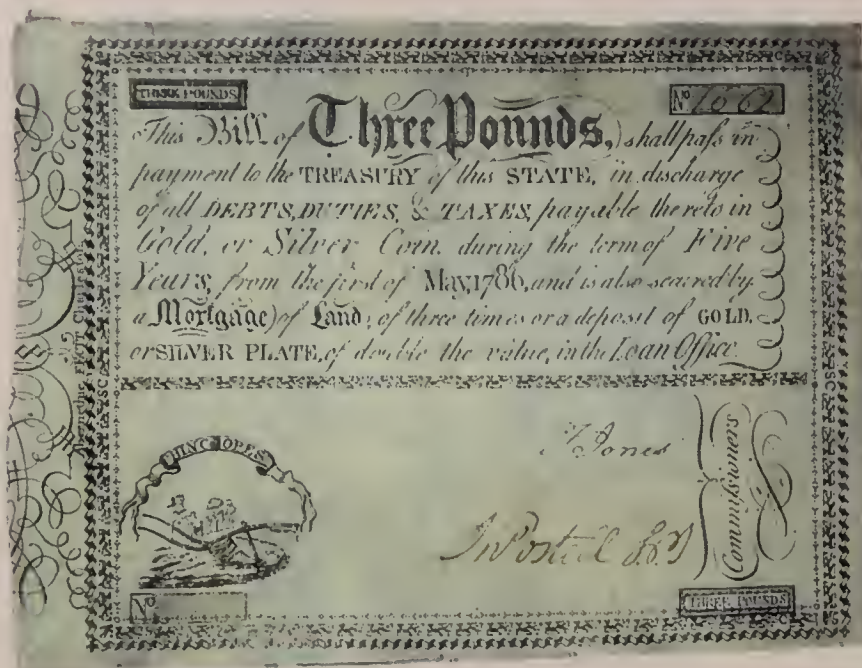 THREE POUNDS
No
This Bill of Three Pounds, shall pass in
payment to the TREASURY of this STATE, in discharge
of all DEBTS, DUTIES, & TAXES, payable thereto in
Gold, or Silver Coin, during the term of Five
Years, from the first of May, 1786, and is also secured by
a Mortgage) of Land, of three times or a deposit of GOLD.
or SILVER PLATE, of double the value, in the Loan Office.
HINC OPES
Jones
Commissioners
No
THREE POUNDS